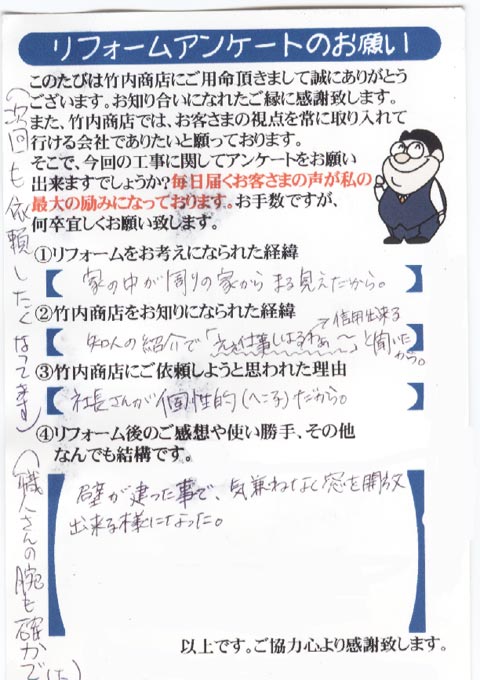 リフォームアンケートのお願い
このたびは竹内商店にご用命頂きまして誠にありがとう
ございます。お知り合いになれたご縁に感謝致します。
また、竹内商店では、お客さまの視点を常に取り入れて
行ける会社でありたいと願っております。
そこで、今回の工事に関してアンケートをお願い
出来ますでしょうか?毎日届くお客さまの声が私の
最大の励みになっております。お手数ですが、
何卒宜しくお願い致します。
①リフォームをお考えになられた経緯
家の中が周りの家からまる見えだから。
②竹内商店をお知りになられた経緯
知人の紹介で「ええ仕事しはるわぁ〜」と聞いたから。
→信用出来る
③竹内商店にご依頼しようと思われた理由
社長さんが個性的(へんこ)だから。
④リフォーム後のご感想や使い勝手、その他
なんでも結構です。
壁が建った事で、気兼ねなく窓を開放
出来る様になった。
以上です。ご協力心より感謝致します。
(次回も依頼したくなってます)
(職人さんの腕も確かでした)